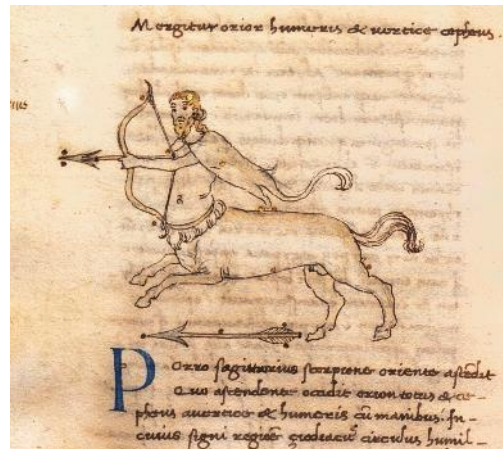 Mergitur orior humeris & uertice cepheus.
Porro sagittarius scorpione oriente ascendit
Quo ascendente occidit orion totus & ce-
pheus a uertice & humeris cu manibus: In
cuius signi regioe zodiacus circulus humil-